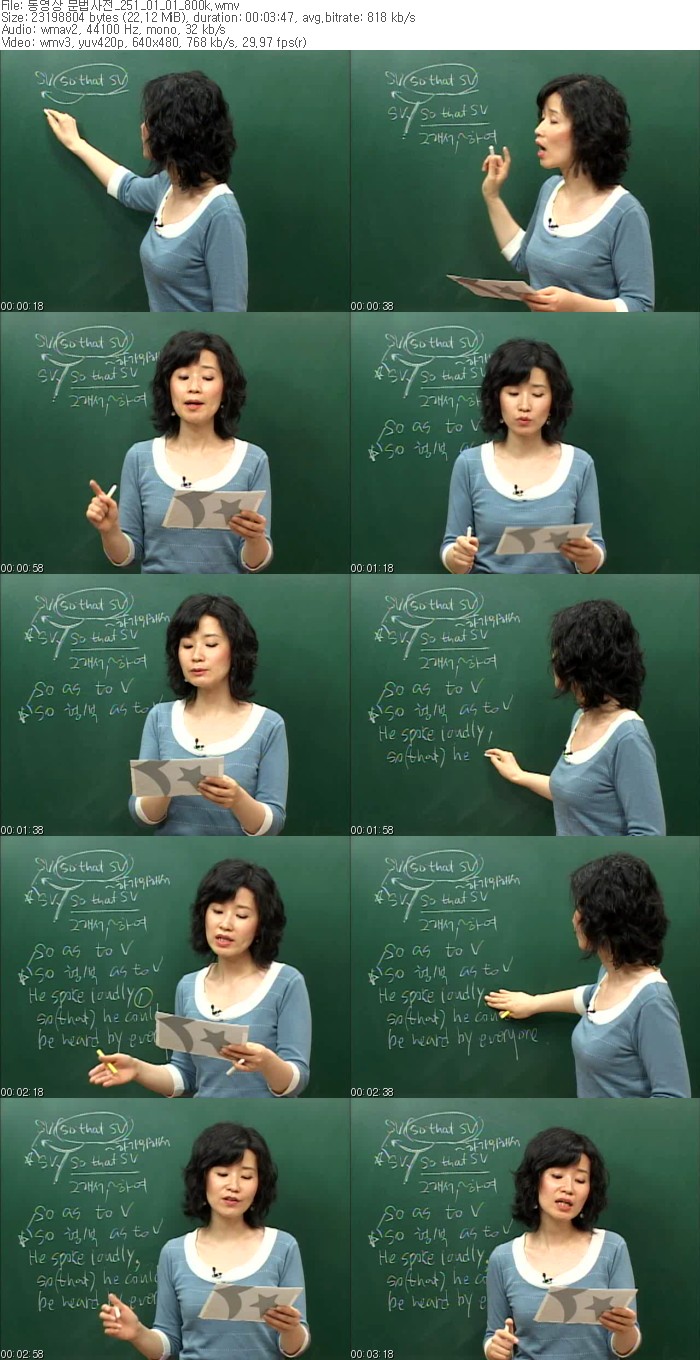 File: 동영상 문법사전_251_01_01_800k.wmv
Size: 23198804 bytes (22.12 MiB), duration: 00:03:47, avg.bitrate: 818 kb/s
Audio: wmav2, 44100 Hz, mono, 32 kb/s
Video: wmv3, yuv420p, 640x480, 768 kb/s, 29.97 fps(r)
SV so that SV
00:00:18
SV so that SV
SV, so that SV
그래서, ~하여
00:00:38
SV so that SV
~하기위하여
SV, so that SV
그래서, ~하여
00:00:58
SV so that SV
SV, so that SV
그래서, ~하
so as to V
so 형/부 as
00:01:18
SV so that SV
~하기위하여
SV, so that SV
그래서, ~하여
so as to V
so 형/부 as to V
00:01:38
SV so that SV
~하기위하여
SV, so that SV
그래서, ~하여
so as to V
so 형/부 as to V
He spoke loudly,
so(that) he
00:01:58
SV so that SV
~하기위하여
SV, so that SV
그래서, ~하여
so as to V
so 형/부 as to V
He spoke loudly,
so(that) he could
be heard by ever
00:02:18
SV so that SV
~하기위하여
SV, so that SV
그래서, ~하여
so as to V
so 형/부 as to V
He spoke loudly
so(that) he coul
be heard by everyone.
00:02:38
SV so that SV
~하기위하여
SV, so that SV
그래서, ~하여
so as to V
so 형/부 as to V
He spoke loudly,
so(that) he could
be heard by ever
00:02:58
SV so that SV
~하기위하여
SV, so that SV
그래서, ~하여
so as to V
so 형/부 as to V
He spoke loudly,
so(that) he co
be heard by e
00:03:18